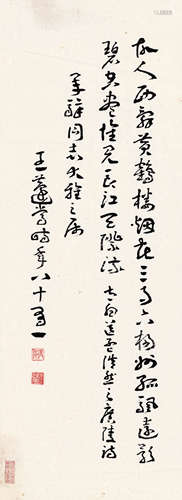 故人西辭黃鶴樓烟花三月下楊州孤颿遠影
碧空盡惟見長江天際流 太白送孟浩然之廣陵詩
同志大雅之屬
王蘧常時年八十又一